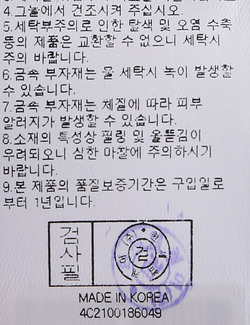 4.그늘에서 건조시켜 주십시오.
5.세탁부주의로 인한 탈색 및 오염 수축
등의 제품은 교환할 수 없으니 세탁시
주의 바랍니다.
6.금속 부자재는 울 세탁시 녹이 발생할
수 있습니다.
7.금속 부자재는 체질에 따라 피부
알러지가 발생할 수 있습니다.
8.소재의 특성상 필링 및 올뜯김이
우려되오니 심한 마찰에 주의하시기
바랍니다.
9.본 제품의 품질보증기간은 구입일로
부터 1년입니다.
검사필
검
MADE IN KOREA
4C2100186049